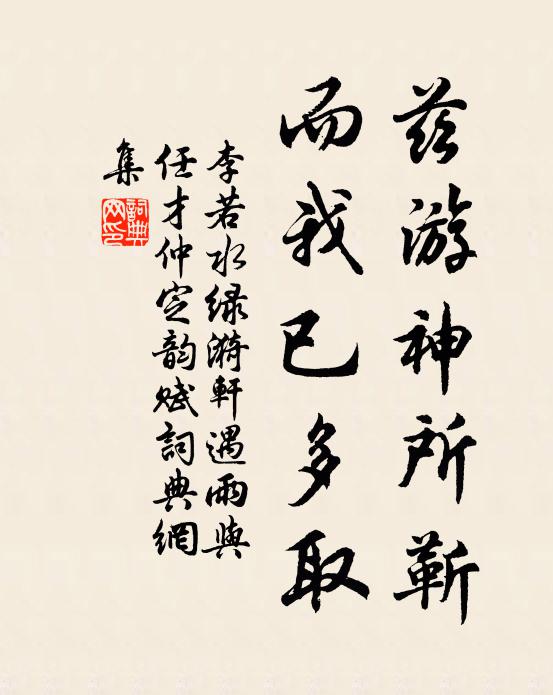 茲游神所靳
而我已多取
李若水绿漪軒遇雨與
任才仲定韵赋詞典網
集
詞典網印